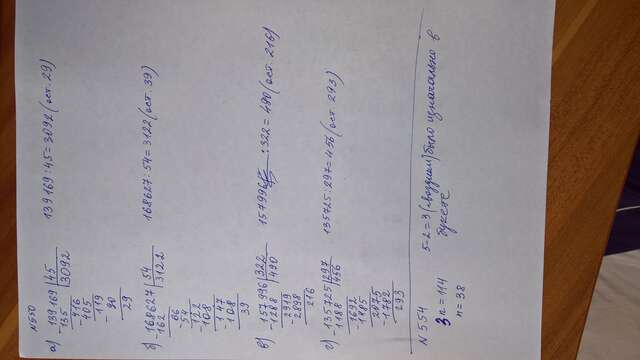 N 550
а) 139169 | 45   139169 : 45 = 3092 (ост. 29)
135 | 3092
416
405
119
90
29
б) 168627 | 54   168627 : 54 = 3122 (ост. 39)
162 | 3122
66
54
122
108
147
108
39
в) 157996 | 322   157996 : 322 = 490 (ост. 216)
1288 | 490
2919
2898
216
г) 135725 | 297   135725 : 297 = 456 (ост. 293)
1188 | 456
1692
1485
2075
1782
293
N 554   5-2=3 (гвоздики) было изначально в
3n = 114   букете
n = 38